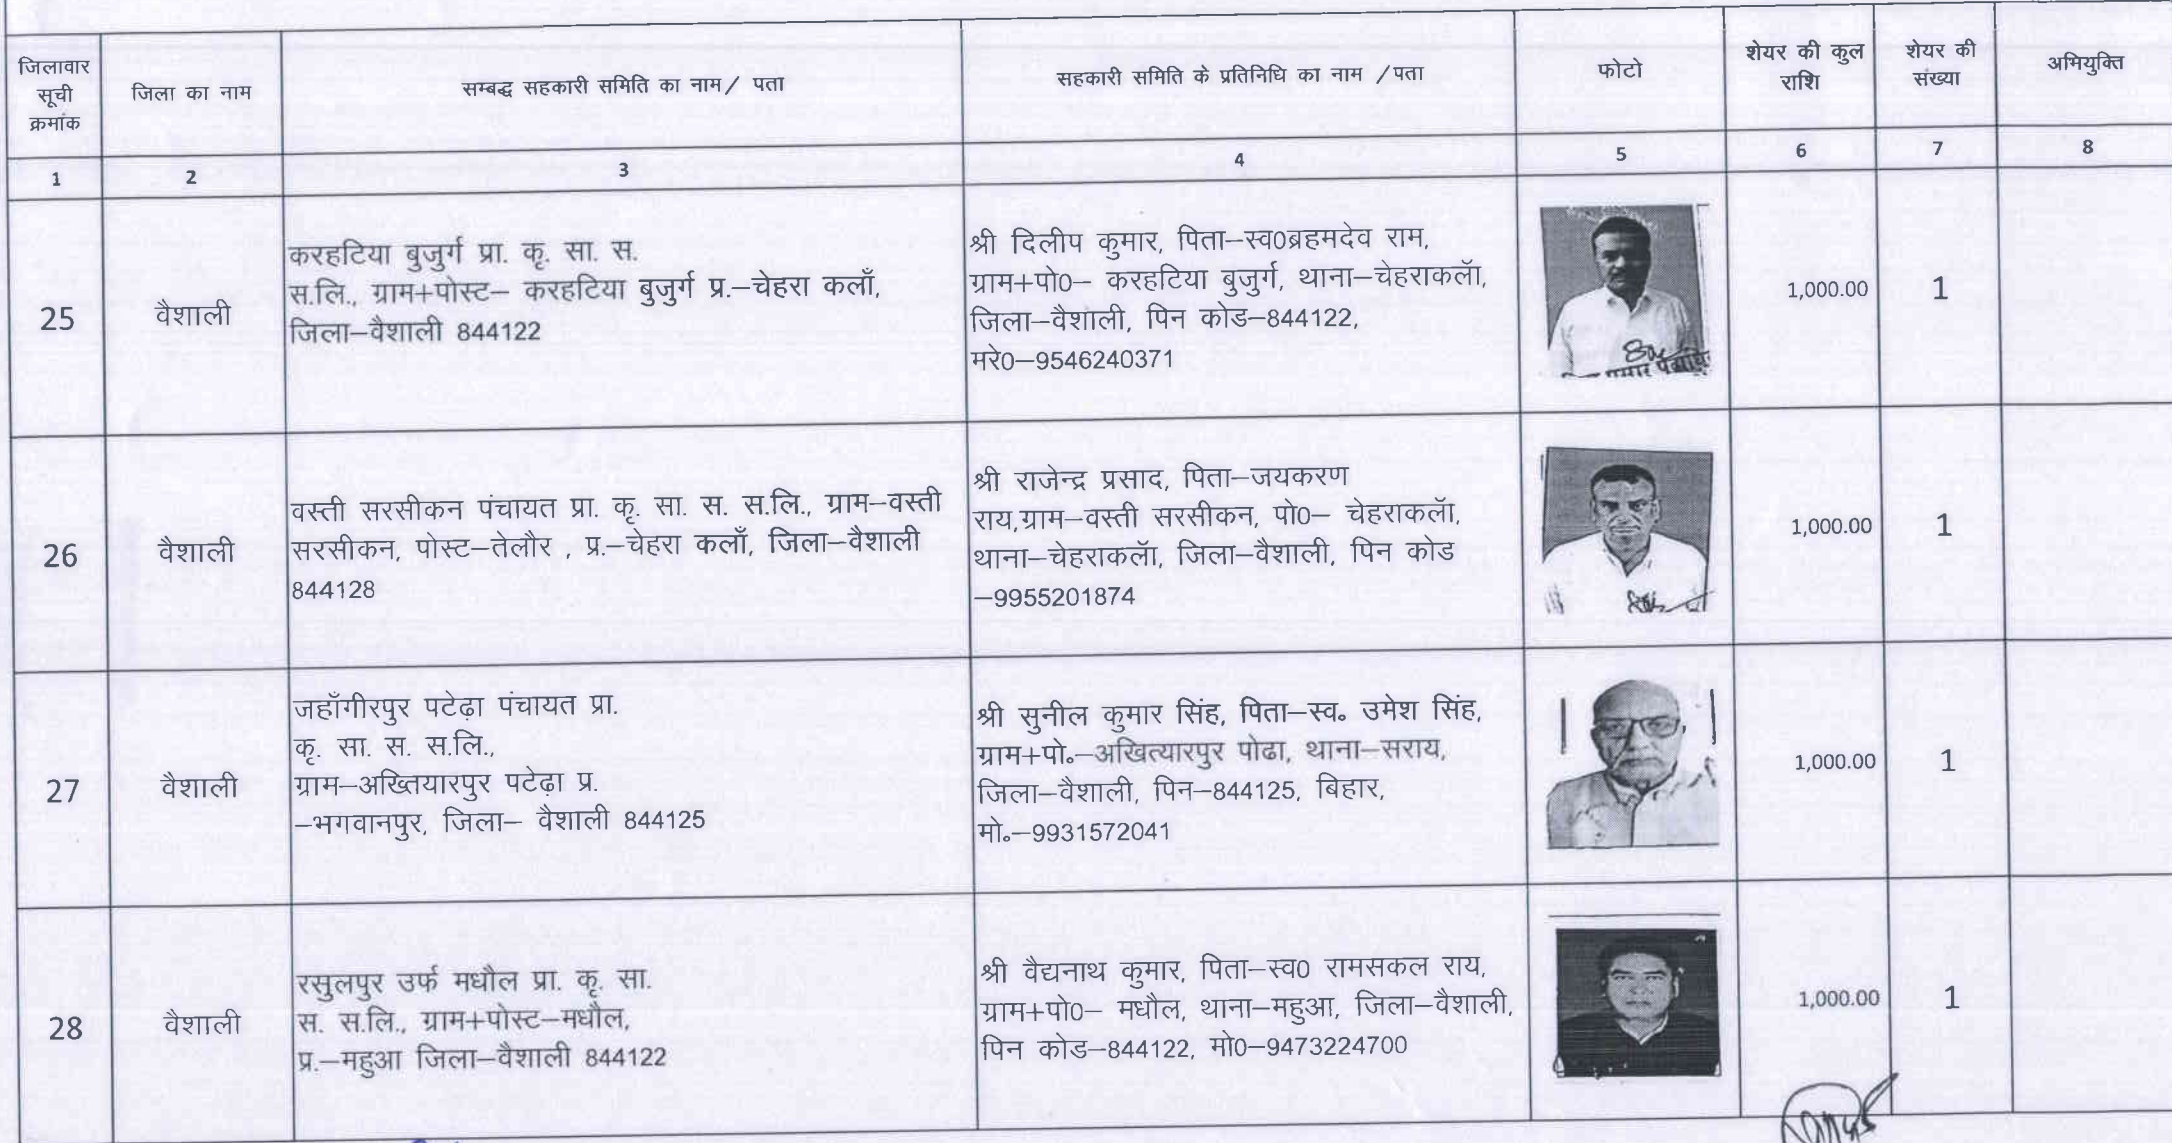 जिलावार
सूची
क्रमांक
जिला का नाम
सम्बद्ध सहकारी समिति का नाम/ पता
सहकारी समिति के प्रतिनिधि का नाम /पता
फोटो
शेयर की कुल
राशि
शेयर की
संख्या
अभियुक्ति
1
2
3
4
5
6
7
8
25
वैशाली
करहटिया बुजुर्ग प्रा. कृ. सा. स.
स.लि., ग्राम+पोस्ट– करहटिया बुजुर्ग प्र.–चेहरा कलाँ,
जिला–वैशाली 844122
श्री दिलीप कुमार, पिता–स्व0ब्रहमदेव राम,
ग्राम+पो0– करहटिया बुजुर्ग, थाना–चेहराकलॅा,
जिला–वैशाली, पिन कोड–844122,
मरे0–9546240371
1,000.00
1
26
वैशाली
वस्ती सरसीकन पंचायत प्रा. कृ. सा. स. स.लि., ग्राम–वस्ती
सरसीकन, पोस्ट–तेलौर , प्र.–चेहरा कलाँ, जिला–वैशाली
844128
श्री राजेन्द्र प्रसाद, पिता–जयकरण
राय,ग्राम–वस्ती सरसीकन, पो0– चेहराकलॅा,
थाना–चेहराकलॅा, जिला–वैशाली, पिन कोड
–9955201874
1,000.00
1
27
वैशाली
जहाँगीरपुर पटेढ़ा पंचायत प्रा.
कृ. सा. स. स.लि.,
ग्राम–अख्तियारपुर पटेढ़ा प्र.
–भगवानपुर, जिला– वैशाली 844125
श्री सुनील कुमार सिंह, पिता–स्व॰ उमेश सिंह,
ग्राम+पो॰–अखित्यारपुर पोढा, थाना–सराय,
जिला–वैशाली, पिन–844125, बिहार,
मो॰–9931572041
1,000.00
1
28
वैशाली
रसुलपुर उर्फ मधौल प्रा. कृ. सा.
स. स.लि., ग्राम+पोस्ट–मधौल,
प्र.–महुआ जिला–वैशाली 844122
श्री वैद्यनाथ कुमार, पिता–स्व0 रामसकल राय,
ग्राम+पो0– मधौल, थाना–महुआ, जिला–वैशाली,
पिन कोड–844122, मो0–9473224700
1,000.00
1